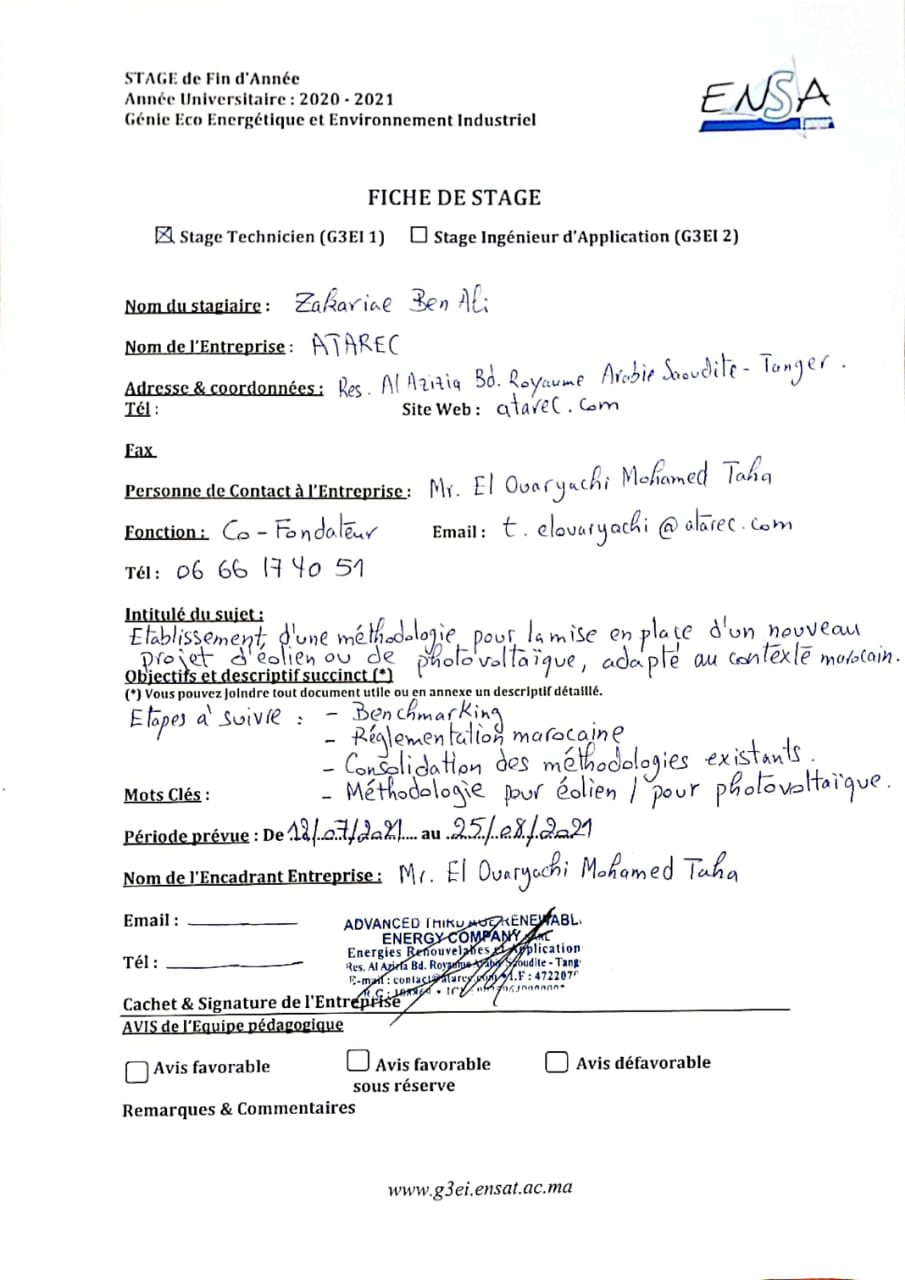 STAGE de Fin d'Année
Année Universitaire : 2020 - 2021
Génie Eco Energétique et Environnement Industriel
ENSA
FICHE DE STAGE
☒ Stage Technicien (G3EI 1) ☐ Stage Ingénieur d'Application (G3EI 2)
Nom du stagiaire : Zakariae Ben Ali
Nom de l'Entreprise : ATAREC
Adresse & coordonnées : Res. Al Azizia Bd. Royaume Arabie Saoudite - Tanger.
Tél : Site Web : atarec.com
Fax
Personne de Contact à l'Entreprise : Mr. El Ouaryachi Mohamed Taha
Fonction : Co-Fondateur Email : t.elouaryachi@atarec.com
Tél : 06 66 17 40 51
Intitulé du sujet :
Etablissement d'une méthodologie pour la mise en place d'un nouveau
projet d'éolien ou de photovoltaïque, adapté au contexte marocain.
Objectifs et descriptif succinct (*)
(*) Vous pouvez joindre tout document utile ou en annexe un descriptif détaillé.
Etapes à suivre : - Benchmarking
- Réglementation marocaine
- Consolidation des méthodologies existants.
Mots Clés : - Méthodologie pour éolien / pour photovoltaïque.
Période prévue : De 12/07/2021 au 25/08/2021
Nom de l'Encadrant Entreprise : Mr. El Ouaryachi Mohamed Taha
Email :
ADVANCED
ENERGY COMPANY
Energies Renouvelables et Application
Tél :
Res. Al Azizia Bd. Royaume Arabie Saoudite - Tang
E-mail : contact@atarec.com I.F : 472207
Cachet & Signature de l'Entreprise
AVIS de l'Equipe pédagogique
☐ Avis favorable ☐ Avis favorable ☐ Avis défavorable
sous réserve
Remarques & Commentaires
www.g3ei.ensat.ac.ma